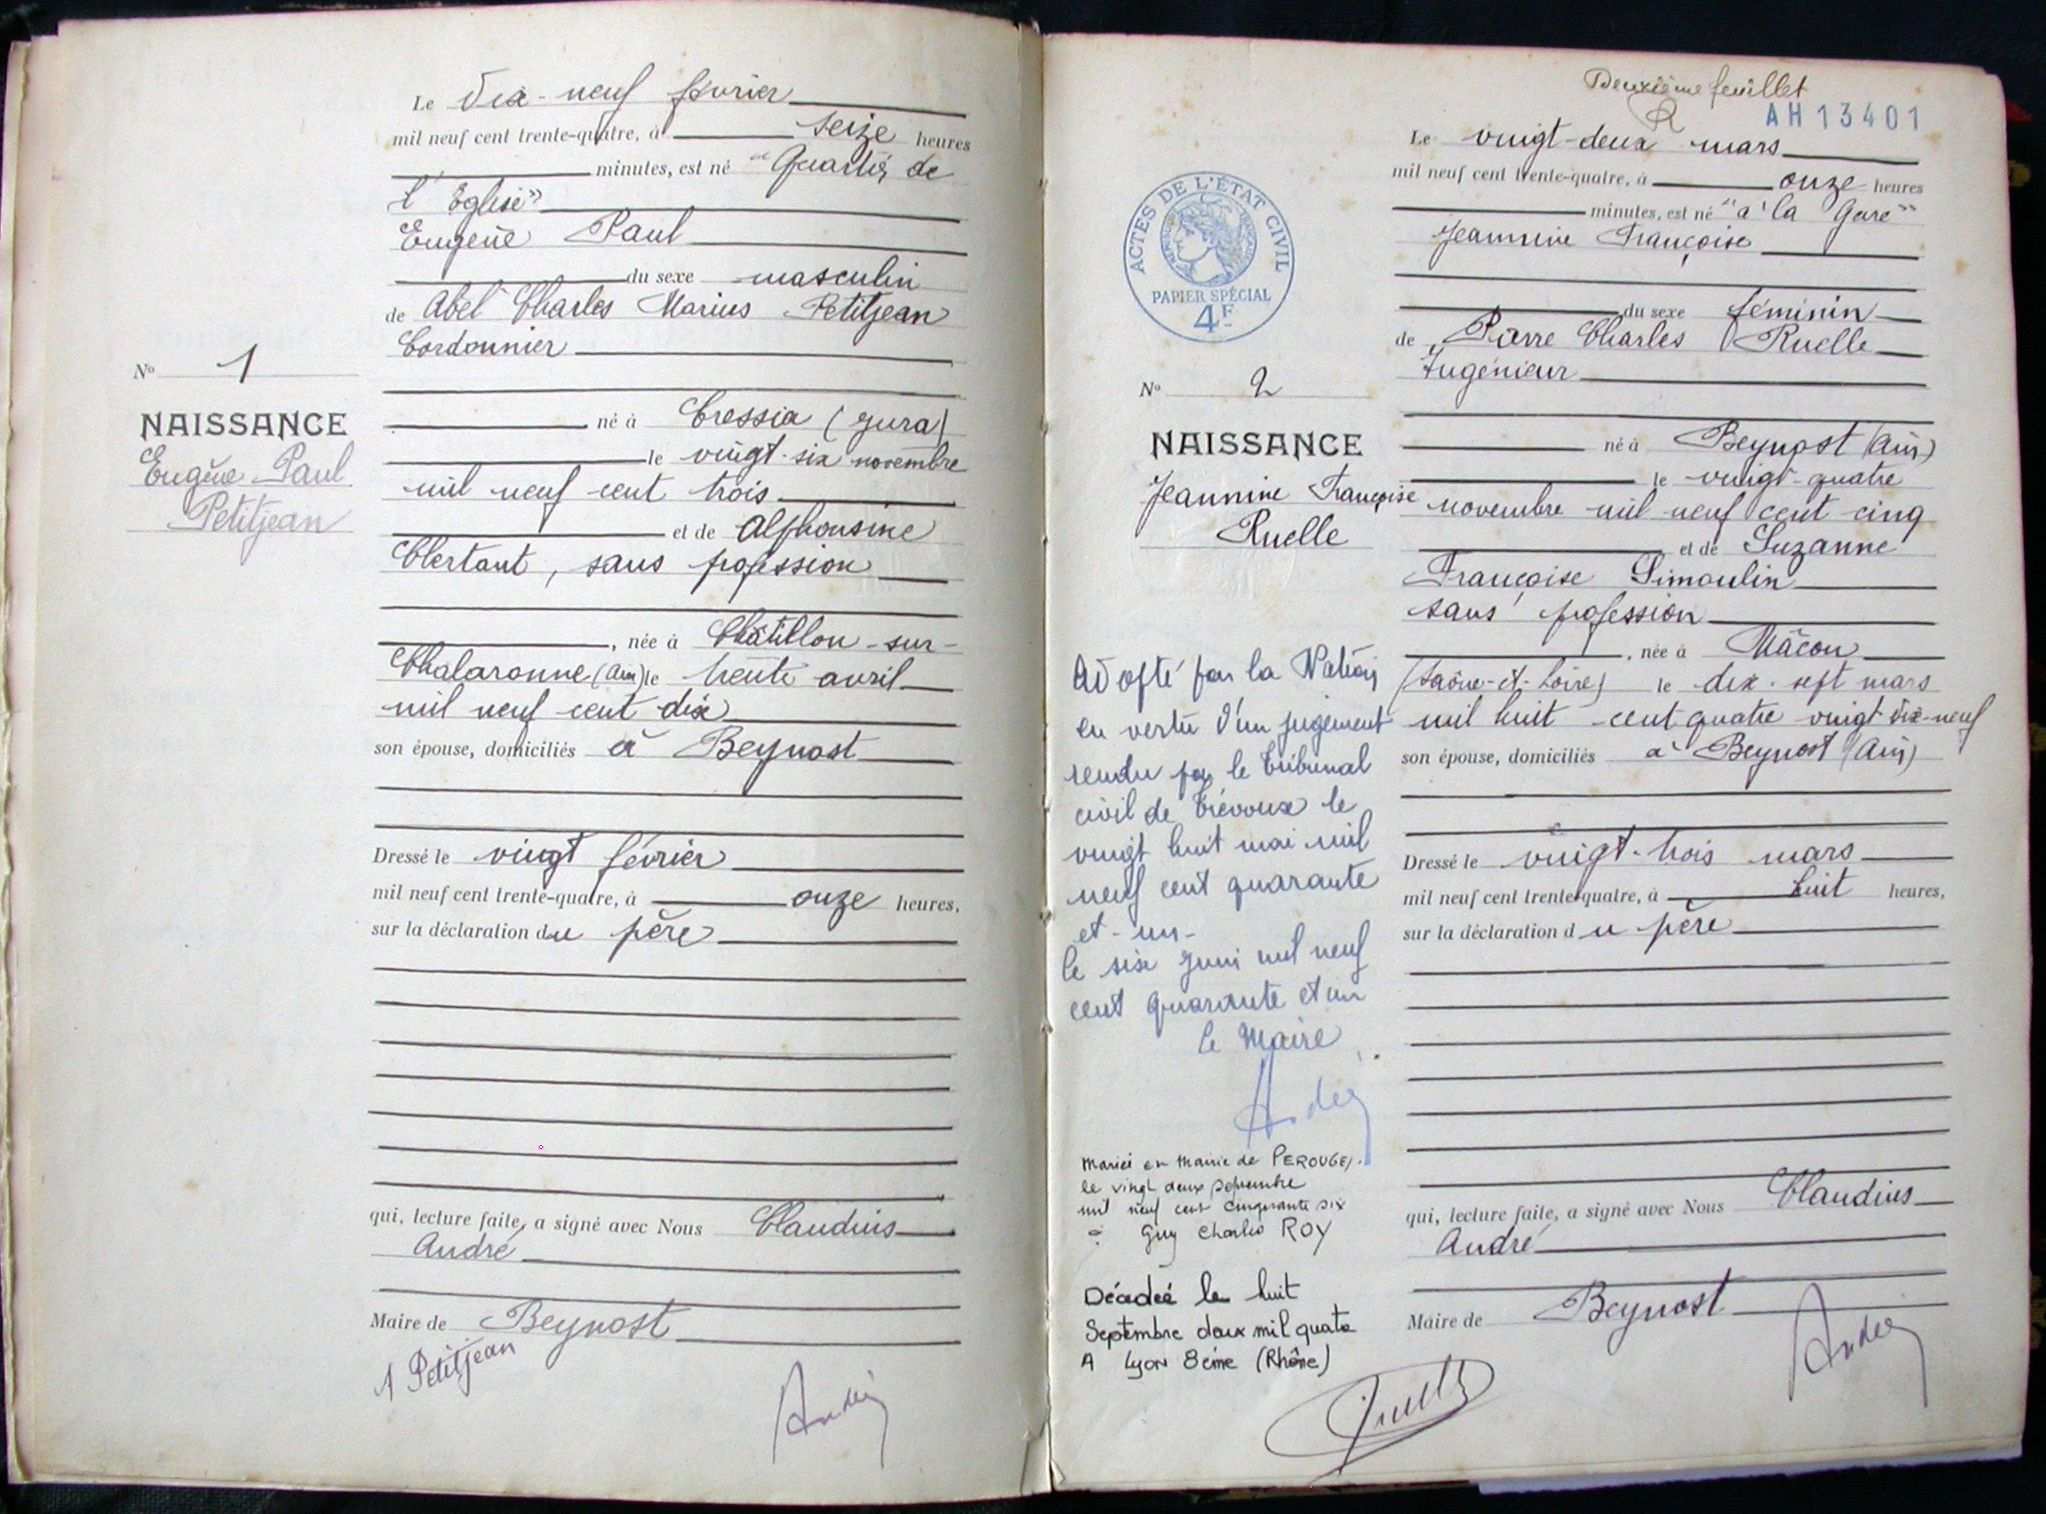 Le dix-neuf février
mil neuf cent trente-quatre, à seize heures
minutes, est né "Quartier de
l'Eglise"
Eugène Paul
du sexe masculin
de Abel Charles Marius Petitjean
Cordonnier
né à Cressia (Jura)
le vingt-six novembre
mil neuf cent trois
et de Alphonsine
Clertant, sans profession
, née à Châtillon-sur-
Chalaronne (Ain) le trente avril
mil neuf cent dix
son épouse, domiciliés à Beynost
Dressé le vingt février
mil neuf cent trente-quatre, à onze heures,
sur la déclaration du père
qui, lecture faite, a signé avec Nous Claudius
André
Maire de Beynost
A Petitjean
André
No 1
NAISSANCE
Eugène Paul
Petitjean
Deuxième feuillet
AH13401
Le vingt-deux mars
mil neuf cent trente-quatre, à onze heures
minutes, est né "à la Gare"
Jeannine Françoise
du sexe féminin
de Pierre Charles Ruelle
Ingénieur
né à Beynost (Ain)
le vingt-quatre
novembre mil neuf cent cinq
et de Suzanne
Françoise Simoulin
sans profession
, née à Mâcon
(Saône-et-Loire) le dix-sept mars
mil huit cent quatre vingt dix-neuf
son épouse, domiciliés à Beynost (Ain)
Dressé le vingt-trois mars
mil neuf cent trente-quatre, à huit heures,
sur la déclaration du père
qui, lecture faite, a signé avec Nous Claudius
André
Maire de Beynost
André
Ruelle
ACTES DE L'ÉTAT CIVIL
PAPIER SPÉCIAL
4F
No 2
NAISSANCE
Jeannine Françoise
Ruelle
Adopté par la Nation
en vertu d'un jugement
rendu par le Tribunal
civil de Trévoux le
vingt huit mai mil
neuf cent quarante
et-un-
le six juin mil neuf
cent quarante et un
Le Maire
André
Mariée en Mairie de PEROUGES.
le vingt deux septembre
mil neuf cent cinquante six
à Guy Charles ROY
Décédée le huit
Septembre deux mil quatre
A Lyon 8ème (Rhône)